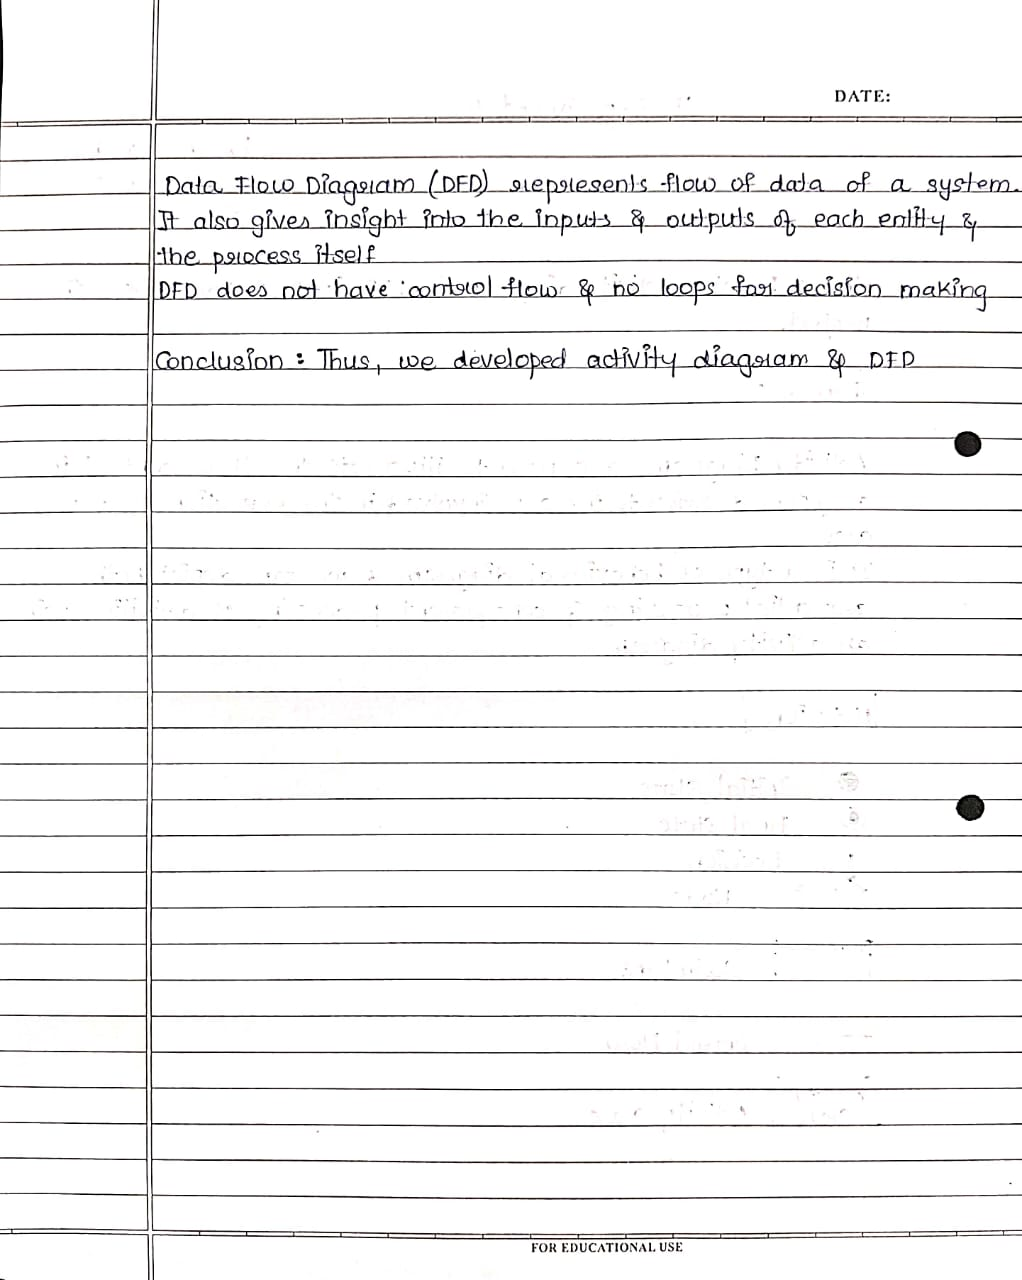 DATE:
Data Flow Diagram (DFD) represents flow of data of a system.
It also gives insight into the inputs & outputs of each entity &
the process itself
DFD does not have control flow & no loops for decision making
Conclusion : Thus, we developed activity diagram & DFD
FOR EDUCATIONAL USE